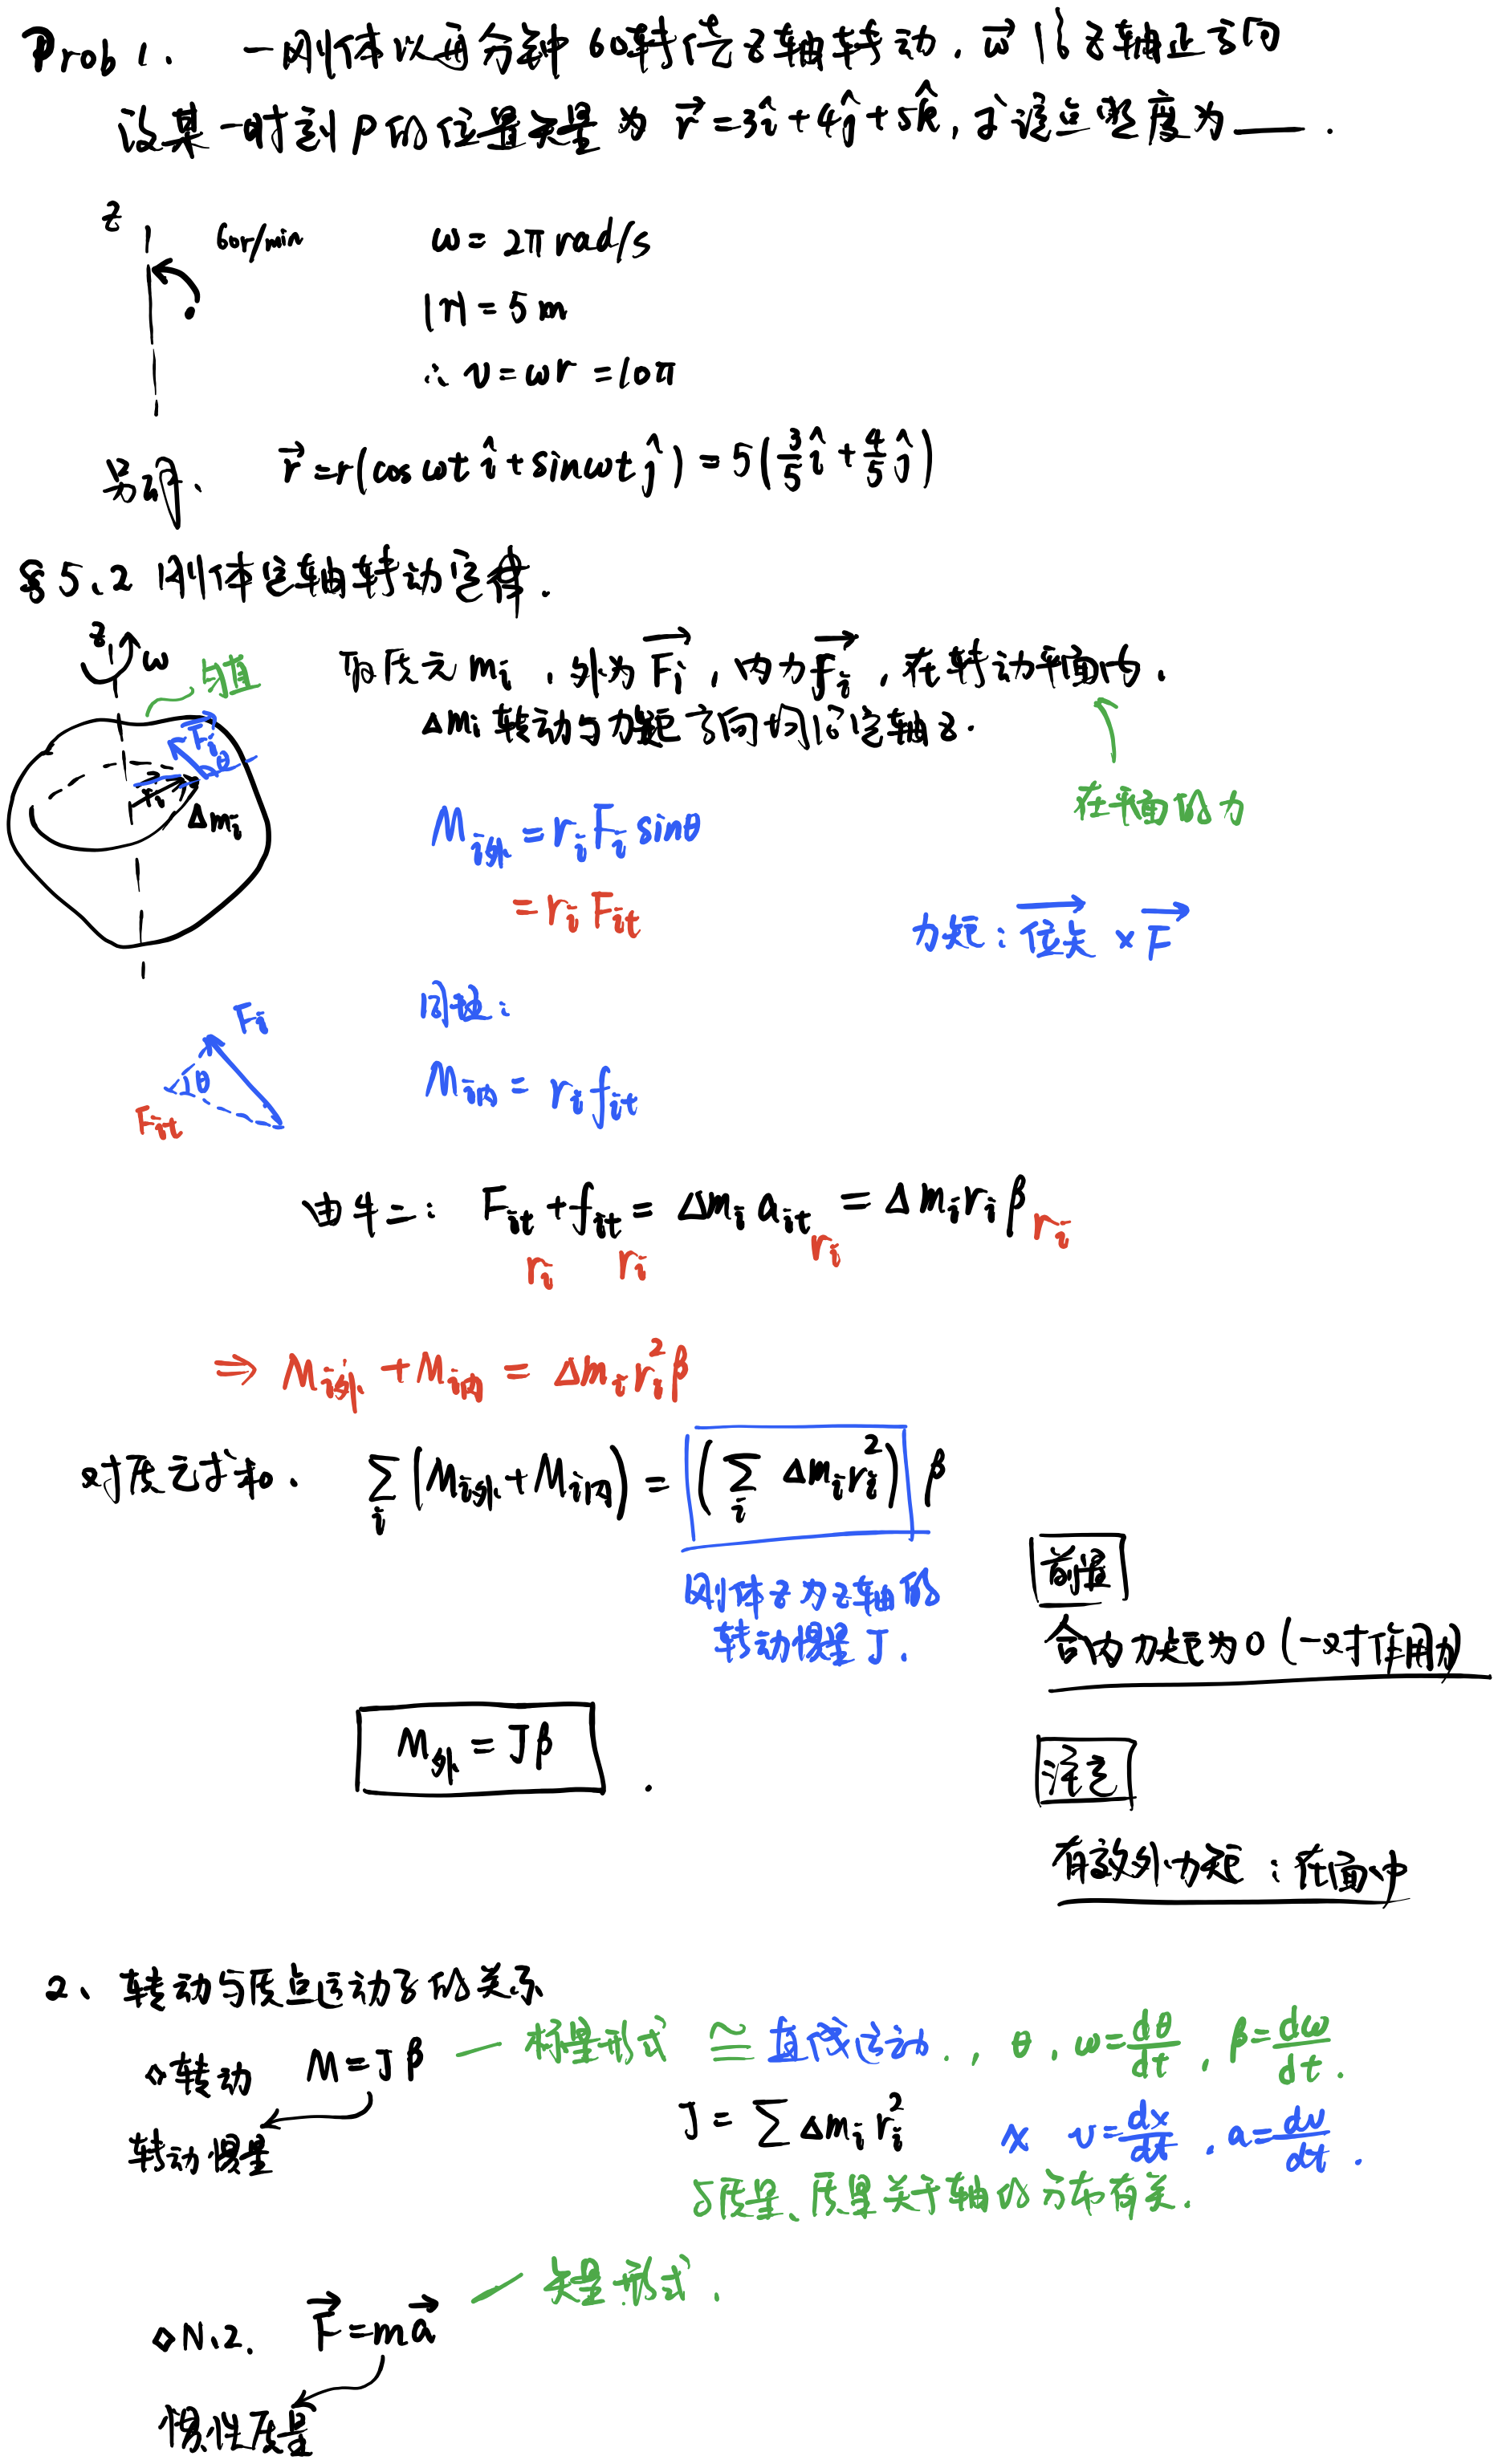 Prob 1. 一刚体以每分钟 60转绕z轴转动, \vec{ω} 沿z轴正方向
设某一时刻P的位置矢量为 \vec{r}=3\hat{i}+4\hat{j}+5\hat{k}, 求该点速度为____.
z
60r/min
ω=2π rad/s
|r|=5m
∴ v=ωr=10π
另外、 \vec{r}=r(cosωt \hat{i}+sinωt \hat{j})=5(\frac{3}{5}\hat{i}+\frac{4}{5}\hat{j})
§5.2 刚体定轴转动定律.
z ω
与直
取质元 m_i, 外为 \vec{F_i}, 内力 \vec{f_i}, 在转动平面内.
Δm_i 转动与力矩方向均沿定轴z.
在平面的力
\vec{F_i} θ
r_i
Δm_i
M_{i外}=r_iF_i sinθ
=r_iF_{it}
力矩: \vec{位矢} × \vec{F}
同理:
M_{i内}=r_if_{it}
F_i
θ
F_{it}
由牛二: F_{it}+f_{it}=Δm_i a_{it}=Δm_i r_i β
r_i r_i r_i r_i
⇒ M_{i外}+M_{i内}=Δm_i r_i^2 β
对质元求和. \sum_i (M_{i外}+M_{i内})=(\sum_i Δm_i r_i^2) β
刚体z为z轴的
转动惯量 J.
前提
合内力矩为0 (一对作用力)
M_外=Jβ.
注意
有效外力矩: 在面中
2、转动与质点运动学的关系
◇转动 M=Jβ — 标量形式 ≅ 直线运动., θ, ω=\frac{dθ}{dt}, β=\frac{dω}{dt}.
转动惯量
J=\sum Δm_i r_i^2 x v=\frac{dx}{dt}, a=\frac{dv}{dt}.
与质量、质量关于轴的分布有关.
◇N.2. \vec{F}=m\vec{a} — 矢量形式.
惯性质量